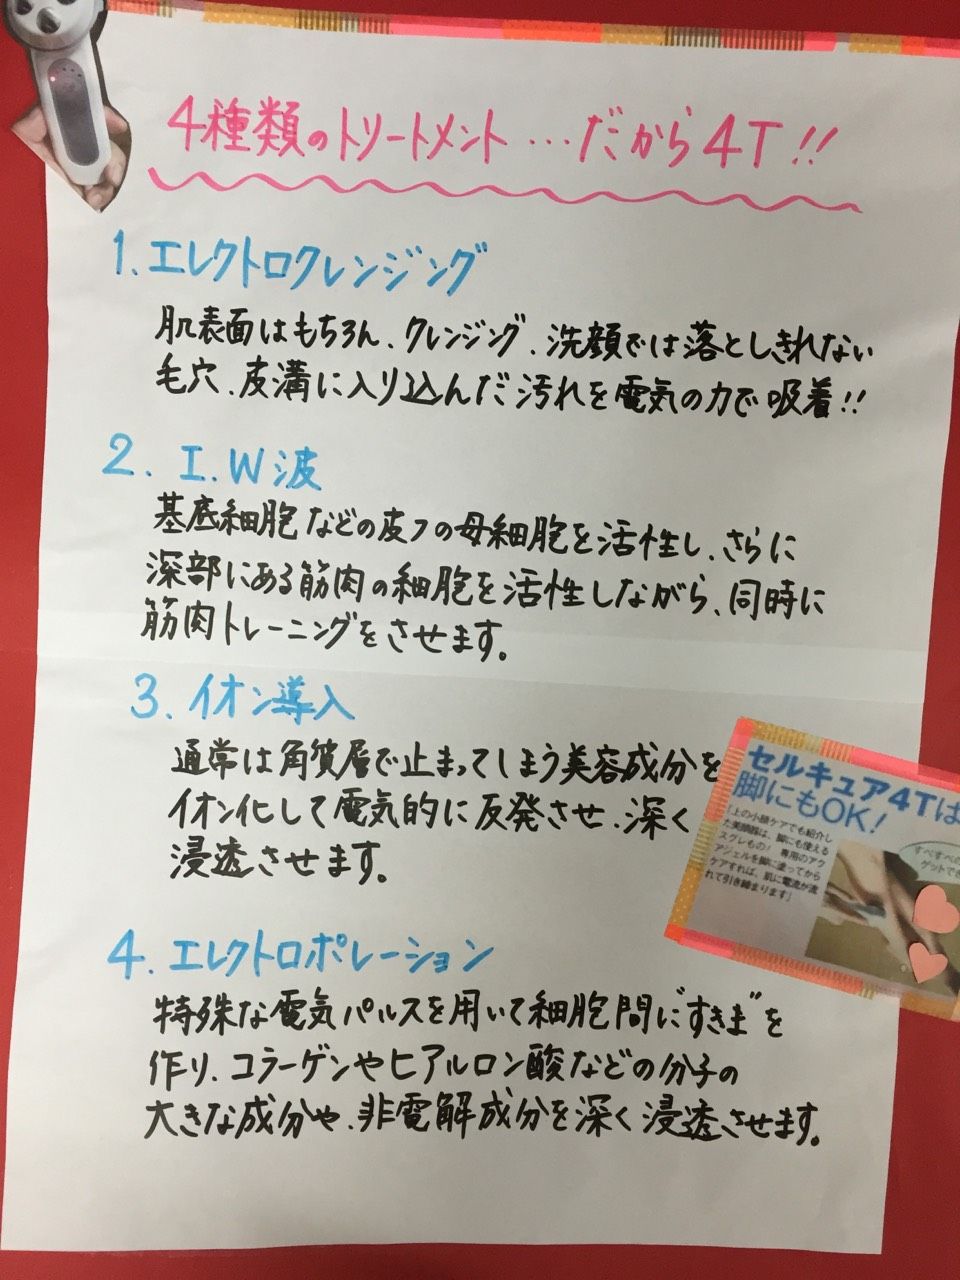 4種類のトリートメント…だから4T!!
1.エレクトロクレンジング
肌表面はもちろん、クレンジング、洗顔では落としきれない
毛穴、皮溝に入り込んだ汚れを電気の力で吸着!!
2. I.W波
基底細胞などの皮フの母細胞を活性し、さらに
深部にある筋肉の細胞を活性しながら、同時に
筋肉トレーニングをさせます。
3.イオン導入
通常は角質層で止まってしまう美容成分を
イオン化して電気的に反発させ、深く
浸透させます。
セルキュア4Tは
脚にもOK!
「上の小顔ケアでも紹介し
た美顔器は、脚にも使える
スグレもの! 専用のアク
アジェルを脚に塗ってから
ケアすれば、肌に電流が流
れて引き締まります」
すべすべの
ゲットでき
4.エレクトロポレーション
特殊な電気パルスを用いて細胞間に"すきま"を
作り、コラーゲンやヒアルロン酸などの分子の
大きな成分や、非電解成分を深く浸透させます。